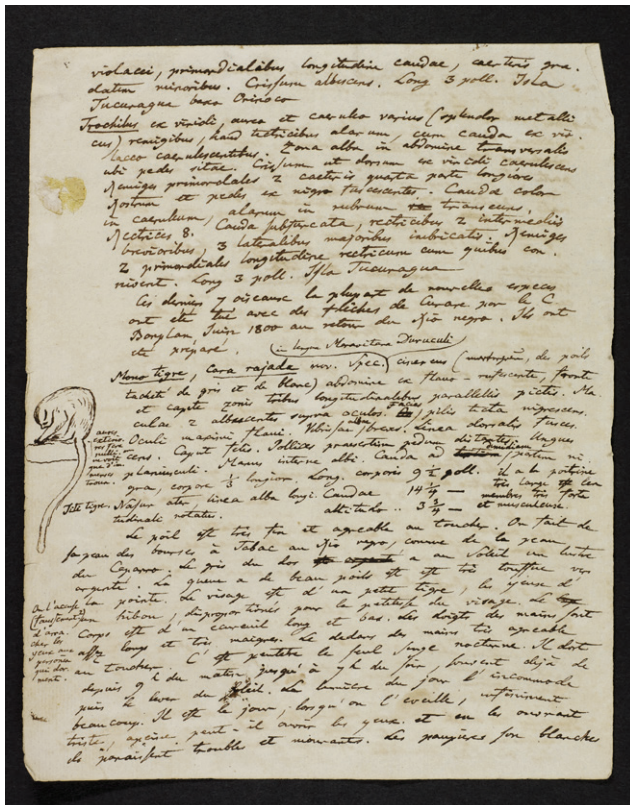 violacei, primordialibus longitudine caudae, caeteris gra.
datim minoribus. Crissum albescens. Long 3 poll. Isla
Tucuragua baxo Orinoco
Trochilus ex viridi, aureo et caeruleo varius (splendor metalli
cus) remigibus, haud tectricibus alarum, cum cauda ex vio.
laceo caerulescentibus. Zona alba in abdomine transversalis
ubi pedes sitae. Crissum ut dorsum ex viridi caerulescens
Remiges primordiales 2 caeteris quarta parte longiores
Rostrum et pedes ex nigro fuscescentes. Caudae color
in caeruleum, alarum in rubrum transeuns.
Rectrices 8. Cauda subfurcata, rectricibus 2 intermediis
brevioribus, 3 lateralibus majoribus imbricatis. Remiges
2 primordiales longitudine rectricum cum quibus con.
nivent. Long 3 poll. Isla Tucuragua
Ces derniers 7 oiseaux la plupart de nouvelles especes
ont été tué avec des flèches de Curare par le C
Bonplan, Juin 1800 au retour du Rio negro. Ils ont
été préparé. (in lingua Maravitana Duruculi)
Mono tigre, Cara rajada nov. Spec. cinereus (de poils
tacheté de gris et de blanc) abdomine ex flavo-rufescente, fronte
et capite zonis tribus longitudinalibus parallelis pictis. Ma
culae 2 albescentes supra oculos. pilis tecta nigrescens.
Oculi maximi flavi. Linea dorsalis fusces
cens. Caput felis. Pollices praesertim pedum distantes Ungues
planiusculi. Manus interne albi. Cauda ad partem ni
gra, corpore longiora. Long. corporis 9 1/2 poll. il a la poitrine
très large et les
Tête tigre. Nasus ater linea alba longi. Caudae 14 1/4 — membres très forts
tudinali notatus. altitudo.. 3 3/4 — et musculeuse.
Le poil est très fin et agreable au toucher. On fait de
sa peau des bourses à Tabac au Rio negro, comme de la peau
du Caparro. Le gris du dos a au Soleil un lustre
argenté. La queue a de beau poils et est très touffue vers
la pointe. Le visage est d'un petit tigre, les yeux d'
un hibou, disproportionés pour la petitesse du visage. Le
Corps est d'un ecureuil long et bas. Les doigts des mains sont
assez longs et très maigres. Le dedans des mains très agreable
au toucher. C'est peutetre le seul Singe nocturne. Il dort
depuis 9 h du matin jusqu'à 7 h du soir, souvent déjà de
puis le lever du Soleil. La lumière du jour l'incommode
beaucoup. Il est le jour, lorsqu'on l'eveille, infiniment
triste, apeine peut-il ouvrir les yeux et en les ouvrant
ils paraissent trouble et mourants. Les paupières son blanches
aures
externe
On l'accuse
(faussement)
d'arra
cher les
yeux aux
personnes
qui dor
ment.